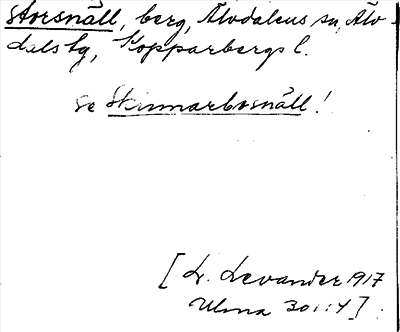 Storsnäll, berg, Älvdalens sn, Älv-
dals tg, Kopparbergs l.
se Skinnarbosnäll!
[L. Levander 1917
Ulma 301:4]